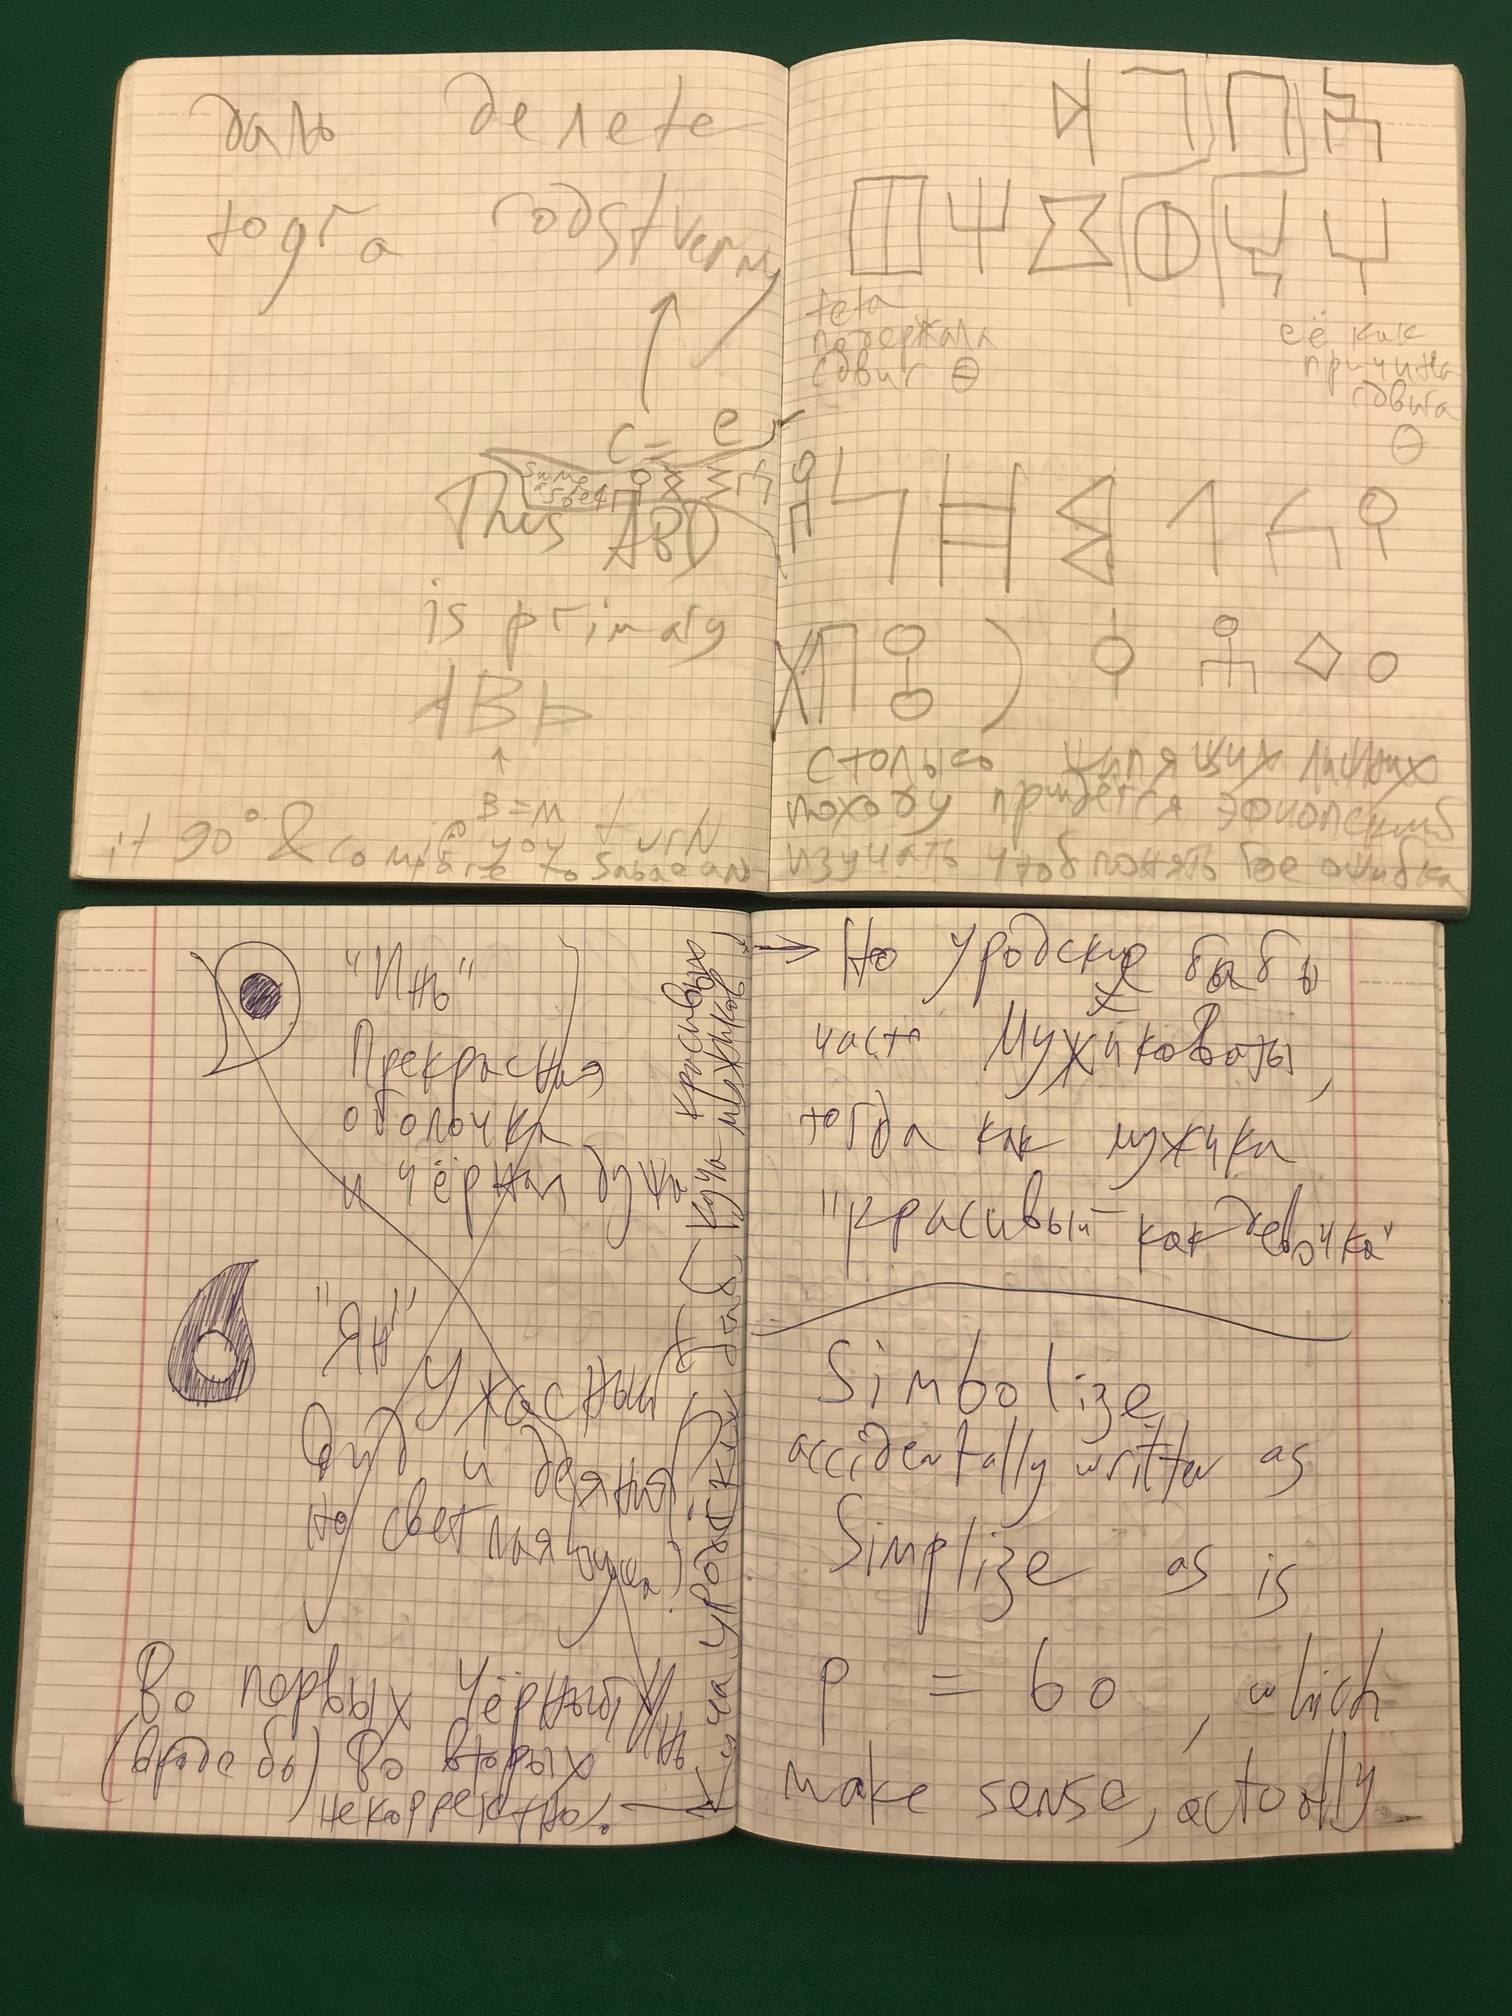 даль делете
тогда rodstvenny
C = e
same
This ABD
is primary
ABD
B = M
if you turn
it 90° & compare to Sabaean
teta
подержала
сдвиг Θ
её как
причина
сдвига
Θ
столько шипящих лишних
походу придётся эфиопский
изучать чтоб понять где ошибка
"Инь"
Прекрасная
оболочка
и чёрная душа
"Ян"
Ужасный
вид и деяния
но светлая душа
Во первых чёрный Инь
(вроде бы) Во вторых
некорректно!
куча уродских баб (куча красивых
мужиков)
Но уродские бабы
часто Мужиковаты,
тогда как мужики
"красивый как девочка"
Simbolize
accidentally written as
Simplize as is
p = bo , which
make sense, actually